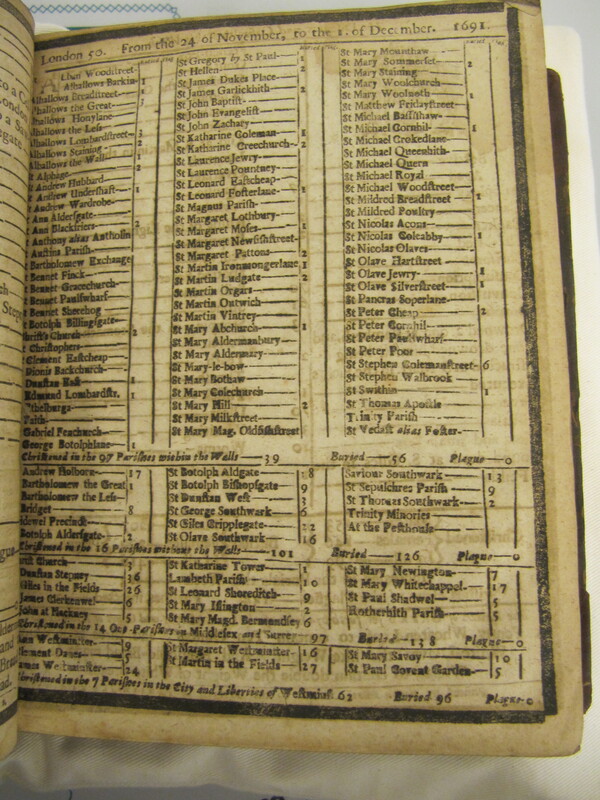 London 50. From the 24 of November, to the 1. of December. 1691.
lhan Woodstreet
Alhallows Barkin 1
Alhallows Breadstreet 1
Alhallows the Great 3
Alhallows Honylane
Alhallows the Less
Alhallows Lombardstreet 3
Alhallows Staining 2
Alhallows the Wall 1
Alphage
Andrew Hubbard
Andrew Undershaft 1
Andrew Wardrobe
Ann Aldersgate
Ann Blackfriers 2
Anthony alias Antholin
Austins Parish
Bartholomew Exchange
Bennet Finck
Bennet Gracechurch
Bennet Paulswharf
Bennet Sherehog
Botolph Billingsgate
Christs Church 2
Christophers
Clement Eastcheap
Dionis Backchurch
Dunstan East 1
Edmund Lombardstr. 1
thelburga
Faith
Gabriel Fenchurch
George Botolphlane 1
St Gregory by St Paul 1
St Hellen 2
St James Dukes Place
St James Garlickhith 2
St John Baptist
St John Evangelist
St John Zachary
St Katharine Coleman 1
St Katharine Creechurch 2
St Laurence Jewry
St Laurence Pountney
St Leonard Eastcheap
St Leonard Fosterlane 1
St Magnus Parish
St Margaret Lothbury
St Margaret Moses 1
St Margaret Newfishstreet
St Margaret Pattons 2
St Martin Ironmongerlane 1
St Martin Ludgate 2
St Martin Orgars
St Martin Outwich
St Martin Vintrey
St Mary Abchurch 1
St Mary Aldermanbury
St Mary Aldermary
St Mary-le-bow
St Mary Bothaw
St Mary Colechurch
St Mary Hill 2
St Mary Milkstreet
St Mary Mag. Oldfishstreet
St Mary Mounthaw
St Mary Sommerset 2
St Mary Staining
St Mary Woolchurch
St Mary Woolnoth 1
St Matthew Fridaystreet
St Michael Bassishaw
St Michael Cornhil 1
St Michael Crokedlane
St Michael Queenhith
St Michael Quern
St Michael Royal
St Michael Woodstreet
St Mildred Breadstreet 1
St Mildred Poultry
St Nicolas Acons
St Nicolas Coleabby 1
St Nicolas Olaves
St Olave Hartstreet
St Olave Jewry 1
St Olave Silverstreet 1
St Pancras Soperlane
St Peter Cheap 2
St Peter Cornhil
St Peter Paulswharf
St Peter Poor
St Stephen Colemanstreet 6
St Stephen Walbrook
St Swithin 1
St Thomas Apostle
Trinity Parish
St Vedast alias Foster
Christened in the 97 Parishes within the Walls 39 Buried 56 Plague 0
Andrew Holborn 17
Bartholomew the Great 1
Bartholomew the Less
Bridget 8
idewel Precinct
Botolph Aldersgate 2
St Botolph Aldgate 8
St Botolph Bishopsgate 9
St Dunstan West 3
St George Southwark 6
St Giles Cripplegate 22
St Olave Southwark 16
Saviour Southwark 13
St Sepulchres Parish 9
St Thomas Southwark 2
Trinity Minories
At the Pesthouse
Christened in the 16 Parishes without the Walls 101 Buried 126 Plague 0
Church 3
Dunstan Stepney 36
Giles in the Fields 26
James Clerkenwel 6
John at Hackney 5
St Katharine Tower 1
Lambeth Parish 10
St Leonard Shoreditch 9
St Mary Islington 2
St Mary Magd. Bermondsey 6
St Mary Newington 7
St Mary Whitechappel 17
St Paul Shadwel 5
Rotherhith Parish 5
Christened in the 14 Out-Parishes in Middlesex and Surrey 97 Buried 138 Plague 0
Westminster 9
Clement Danes 5
James Westminster 24
St Margaret Westminster 16
St Martin in the Fields 27
St Mary Savoy 10
St Paul Covent Garden 5
Christened in the 7 Parishes in the City and Liberties of Westmins. 62 Buried 96 Plague 0